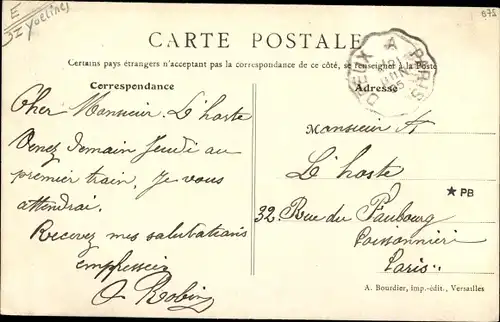 E
N
Yvelines
675
CARTE POSTALE
Certains pays étrangers n'acceptant pas la correspondance de ce côté, se renseigner à la Poste
DREUX A PARIS
Correspondance
Adresse
Cher Monsieur L'hoste
Venez demain Jeudi au
premier train. Je vous
attendrai.
Recevez mes salutations
empressées
Robin
Monsieur
L'hoste
32. Rue du Faubourg
Poissonnière
Paris
★ PB
A. Bourdier, imp.-édit., Versailles